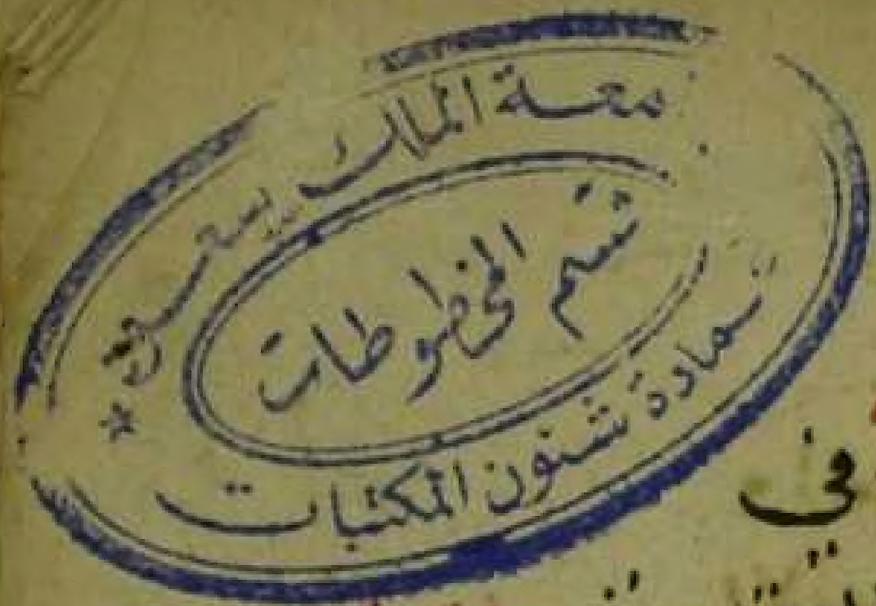 جامعة الملك سعود
قسم المخطوطات
عمادة شئون المكتبات
في